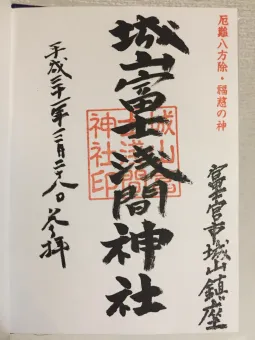 厄難八方除・福慈の神
富士宮市城山鎮座
城山富士浅間神社
平成三十一年二月二十八日参拝